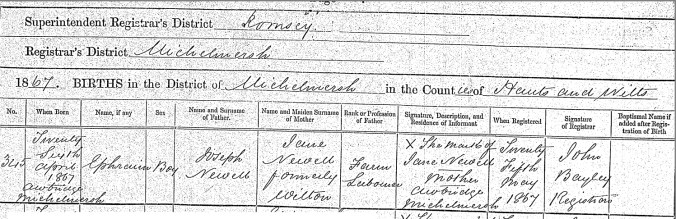 Superintendent Registrar's District Romsey
Registrar's District Michelmersh
1867. BIRTHS in the District of Michelmersh in the Counties of Hants and Wilts
No. When Born Name, if any Sex Name and Surname of Father. Name and Maiden Surname of Mother Rank or Profession of Father Signature, Description, and Residence of Informant When Registered Signature of Registrar Baptismal Name if added after Registration of Birth
345 Twenty Sixth April 1867 Awbridge Michelmersh Ephraim Boy Joseph Newell Jane Newell formerly Wilton Farm Labourer X The Mark of Jane Newell Mother Awbridge Michelmersh Twenty Fifth May 1867 John Bayley Registrar